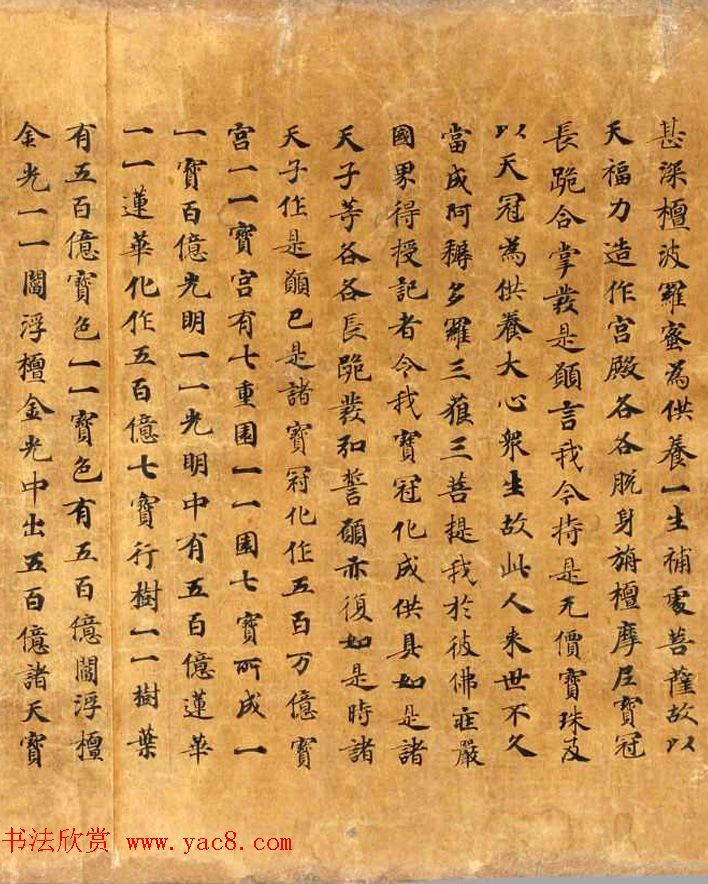 甚深檀波羅蜜為供養一生補處菩薩故以
天福力造作宮殿各各脫身旃檀摩尼寶冠
長跪合掌發是願言我今持是无價寶珠及
以天冠為供養大心眾生故此人来世不久
當成阿耨多羅三藐三菩提我於彼佛莊嚴
國界得授記者令我寶冠化成供具如是諸
天子等各各長跪發弘誓願亦復如是時諸
天子作是願已是諸寶冠化作五百万億寶
宮一一寶宮有七重園一一園七寶所成一
一寶百億光明一一光明中有五百億蓮華
一一蓮華化作五百億七寶行樹一一樹葉
有五百億寶色一一寶色有五百億閻浮檀
金光一一閻浮檀金光中出五百億諸天寶
书法欣赏 www.yac8.com